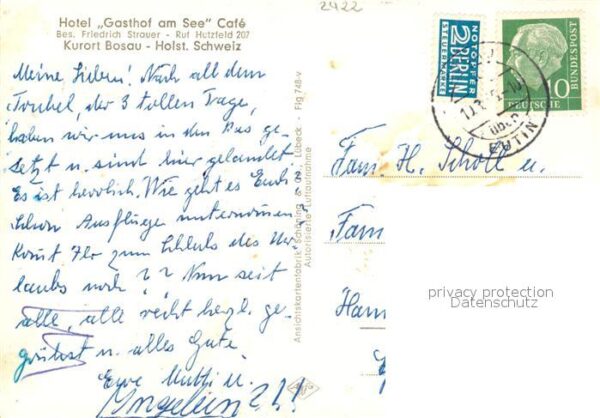 2422
Hotel „Gasthof am See" Café
Bes. Friedrich Strauer - Ruf Hutzfeld 207
Kurort Bosau - Holst. Schweiz
Meine Lieben! Nach all dem
Trubel, der 3 tollen Tage,
haben wir uns in den Bus ge-
setzt u. sind hier gelandet.
Es ist herrlich. Wie geht es Euch?
Schon Ausflüge unternommen?
Kommt Ihr zum Schluß des Ur
laubs noch?? Nun seit
alle, alle recht herzl. ge-
grüßt u. alles Gute.
Eure Mutti u.
Ansichtskartenfabrik Schöning & Co., Lübeck - Flg 748-v
Autorisierte Luftaufnahme
NOTOPFER
2 BERLIN
STEUERMARKE
10
DEUTSCHE
BUNDESPOST
über
EUTIN
Fam. H. Scholl u.
Fam
Ham
privacy protection
Datenschutz